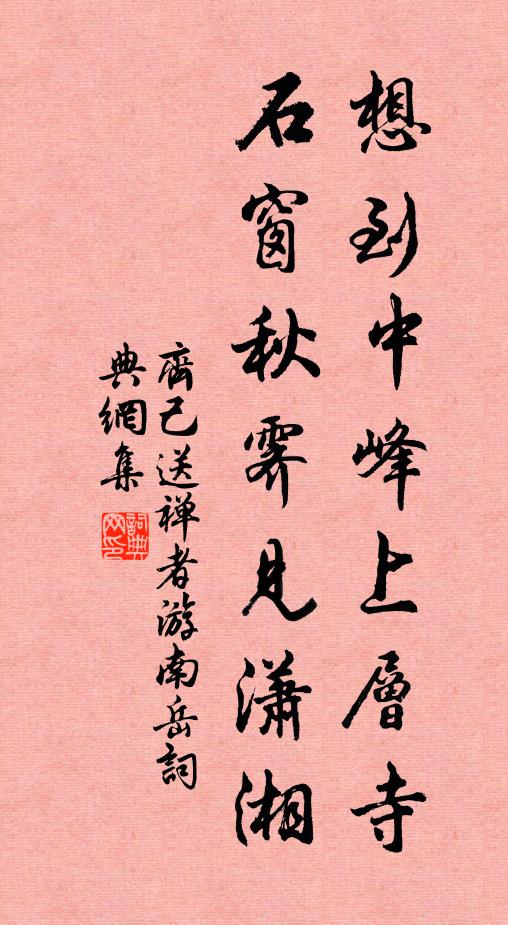 想到中峰上層寺
石窗秋霽見瀟湘
齊己送禅者游南岳詞
典網集
詞典网印